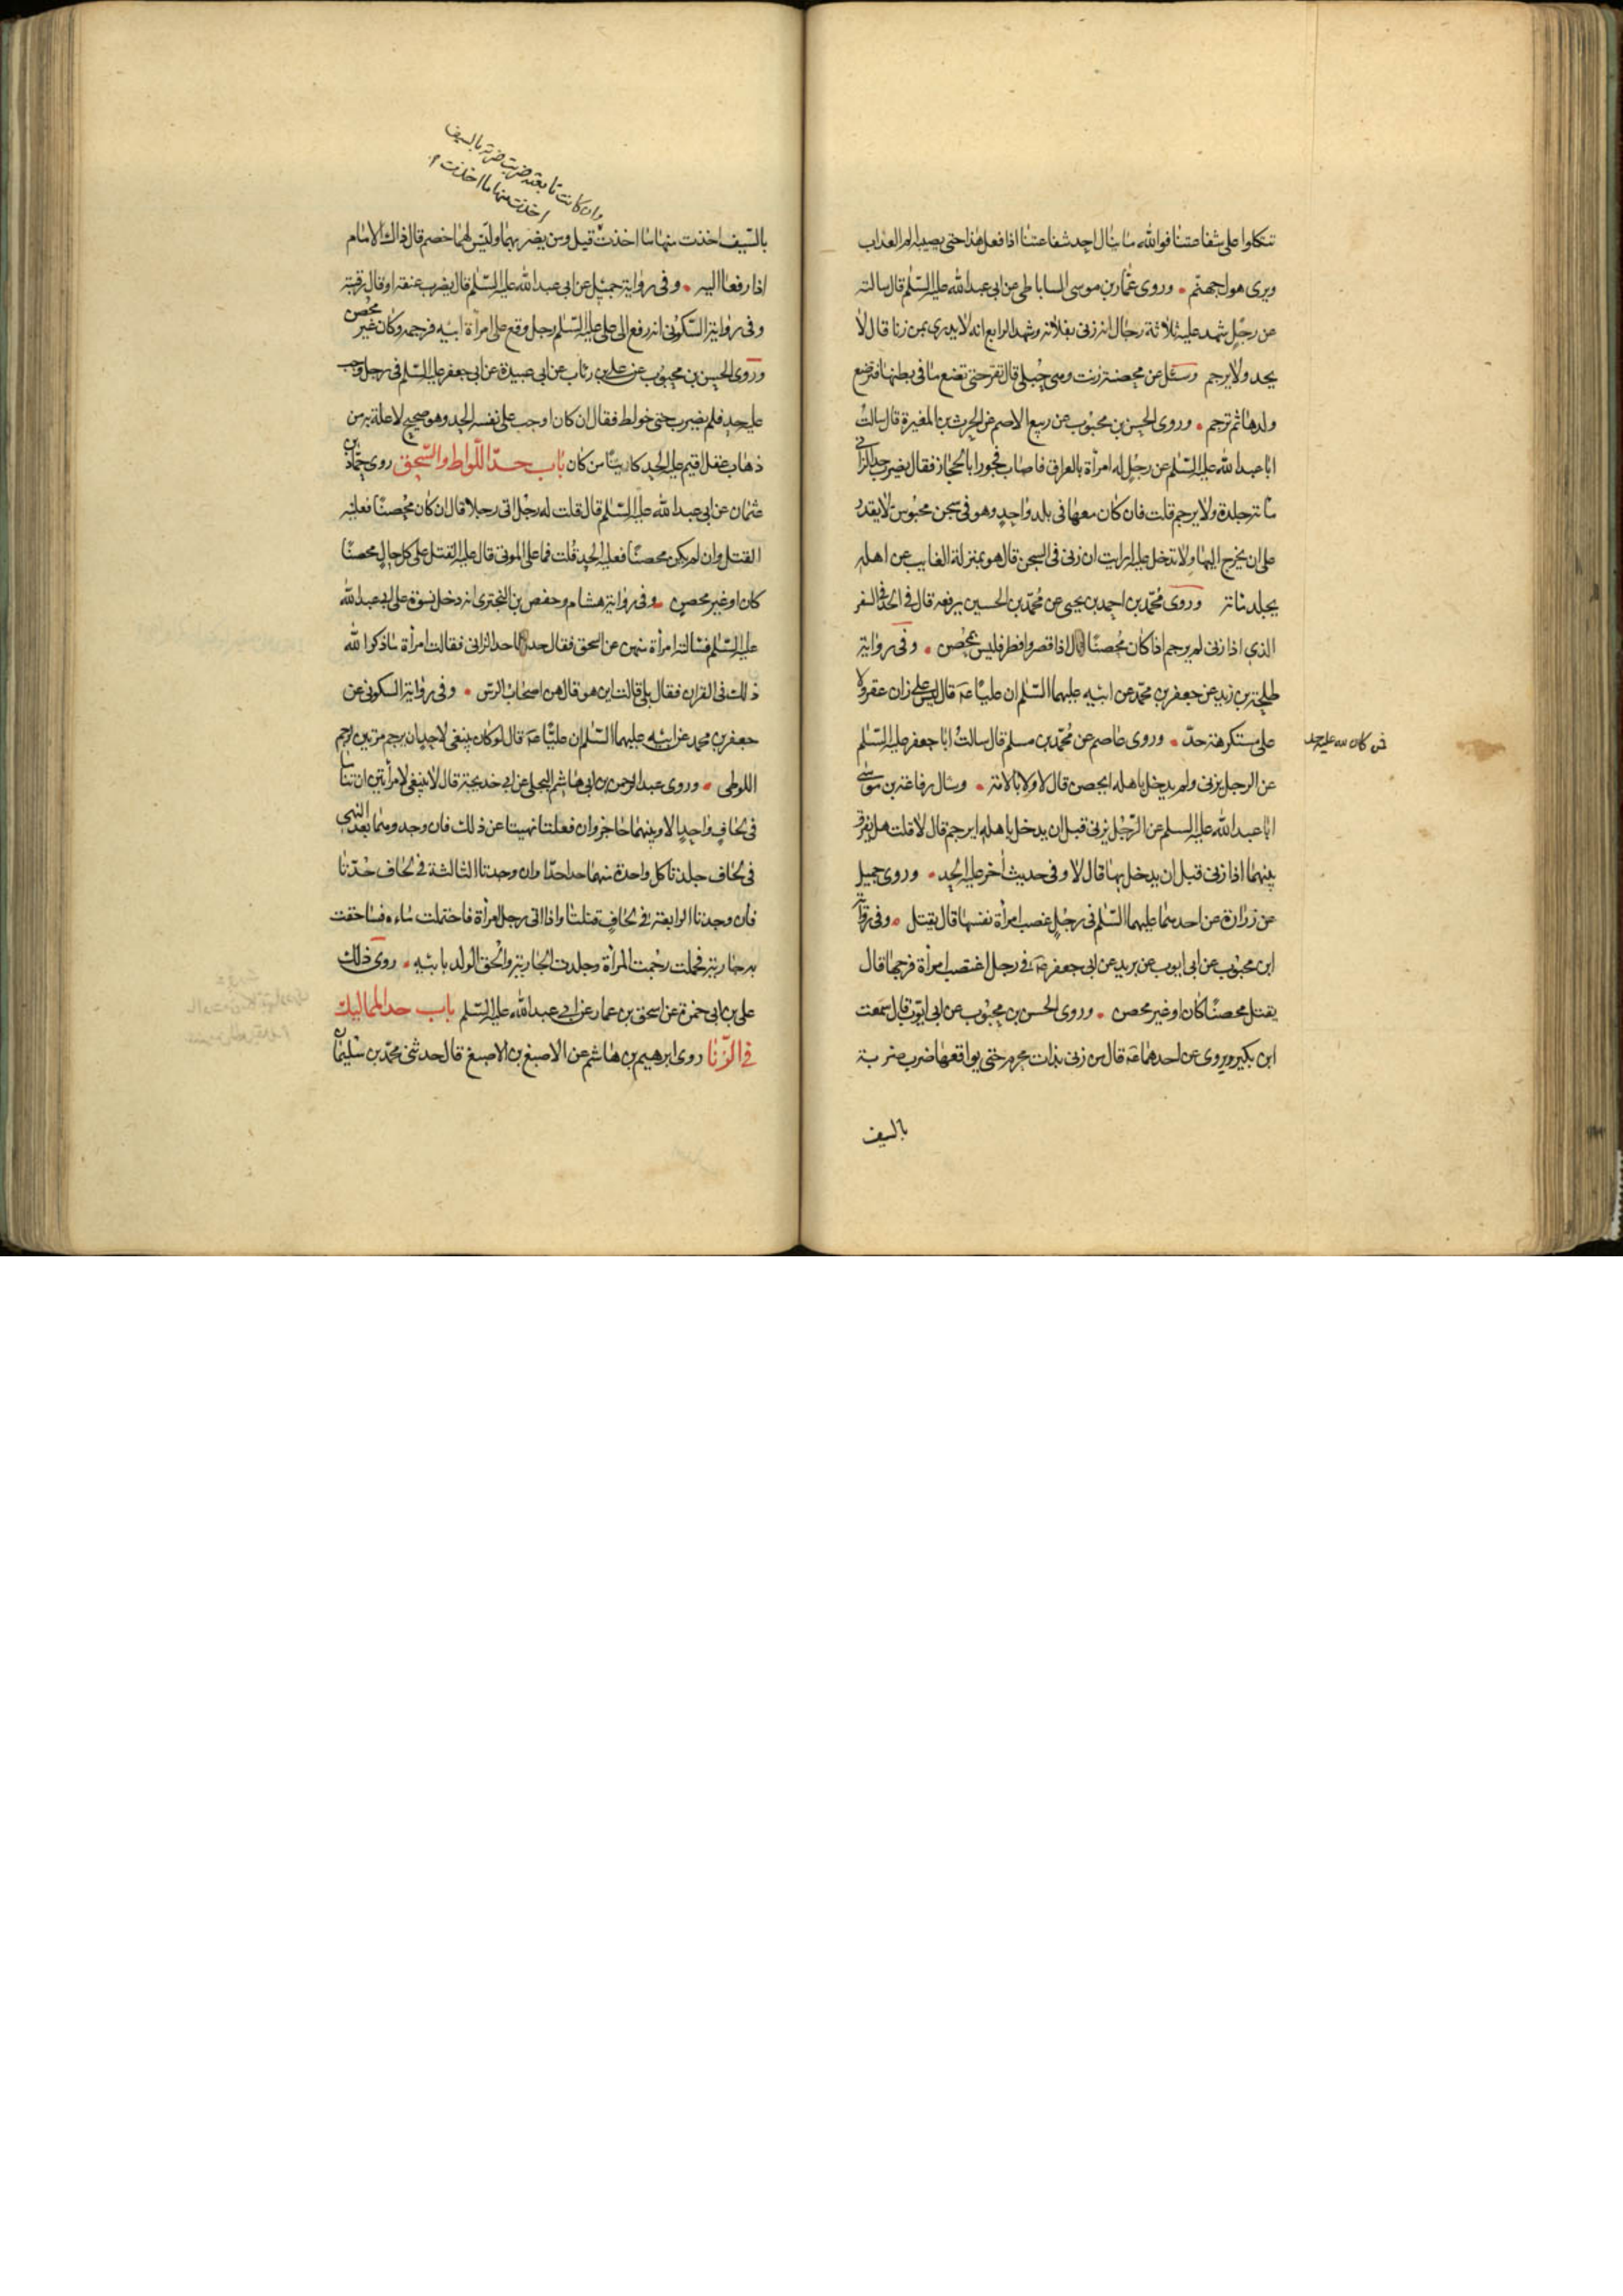 تتكلوا على شفاعتنا فوالله ما ينال احد شفاعتنا اذا فعل هذا حتى يصيبه الم العذاب
ويرى هول جهنم وروى عمار بن موسى الساباطى عن ابى عبدالله عليه السلم قال سالته
عن رجل شهد عليه ثلاثة رجال انه زنى بفلانة وشهد الرابع انه لا يدرى بمن زنا قال لا
يحد ولا يرجم وسئل عن محصنة زنت وهى حبلى قال تقر حتى تضع ما فى بطنها وترضع
ولدها ثم ترجم وروى الحسن بن محبوب عن ربيع الاصم عن الحرث بن المغيرة قال سالت
ابا عبدالله عليه السلم عن رجل له امرأة بالعراق فاصاب فجورا بالحجاز فقال يضرب حد الزانى
مائة جلدة ولا يرجم قلت فان كان معها فى بلد واحد وهو فى سجن محبوس لا يقدر
على ان يخرج اليها ولا تدخل عليه ارايت ان زنى فى السجن قال هو بمنزلة الغايب عن اهله
يجلد مائة وروى محمد بن احمد بن يحيى عن محمد بن الحسين يرفعه قال فى الحد فى السفر
الذى اذا زنى لم يرجم اذا كان محصنا قال اذا قصر وافطر فليس بمحصن وفى رواية
طلحة بن زيد عن جعفر بن محمد عن ابيه عليهما السلم ان عليا عه قال ليس على زان عقر ولا
على مستكرهة حد وروى عاصم عن محمد بن مسلم قال سالت ابا جعفر عليه السلم
عن الرجل يزنى ولم يدخل باهله ايحصن قال لا ولا بالامة وسال رفاعة بن موسى
ابا عبدالله عليه السلم عن الرجل يزنى قبل ان يدخل باهله ايرجم قال لا قلت هل يفرق
بينهما اذا زنى قبل ان يدخل بها قال لا وفى حديث آخر عليه الحد وروى جميل
عن زرارة عن احدهما عليهما السلم فى رجل غصب امرأة نفسها قال يقتل وفى رواية
ابن محبوب عن ابى ايوب عن بريد عن ابى جعفر عه فى رجل اغتصب امرأة فرجها قال
يقتل محصنا كان او غير محصن وروى الحسن بن محبوب عن ابى ايوب قال سمعت
ابن بكير يروى عن احدهما عه قال من زنى بذات محرم حتى يواقعها ضرب ضربة
بالسيف
وان كانت تابعته ضربت ضربة بالسيف
اخذت منها ما اخذت
بالسيف اخذت منها ما اخذت قيل ومن يضربهما وليس لهما خصم قال ذاك الامام
اذا رفعا اليه وفى رواية جميل عن ابى عبدالله عليه السلم قال يضرب عنقه او قال رقبته
وفى رواية السكونى انه رفع الى على عليه السلم رجل وقع على امرأة ابيه فرجمه وكان غير محصن
وروى الحسن بن محبوب عن على بن رئاب عن ابى عبيدة عن ابى جعفر عليه السلم فى رجل وجب
عليه حد فلم يضرب حتى خولط فقال ان كان اوجب على نفسه الحد وهو صحيح لا علة به من
ذهاب عقل اقيم عليه الحد كائنا من كان باب حد اللواط والسحق روى حماد بن
عثمان عن ابى عبدالله عليه السلم قال قلت له رجل اتى رجلا قال ان كان محصنا فعليه
القتل وان لم يكن محصنا فعليه الحد قلت فما على الموتى قال عليه القتل على كل حال محصنا
كان او غير محصن وفى رواية هشام وحفص بن البخترى انه دخل نسوة على ابى عبدالله
عليه السلم فسالته امرأة منهن عن السحق فقال حدها حد الزانى فقالت امرأة ما ذكر الله
ذلك فى القران فقال بلى قالت اين هو قال هن اصحاب الرس وفى رواية السكونى عن
جعفر بن محمد عن ابيه عليهما السلم ان عليا عه قال لو كان ينبغى لاحد ان يرجم مرتين لرجم
اللوطى وروى عبدالرحمن بن ابى هاشم البجلى عن ابى خديجة قال لا ينبغى لامرأتين ان تناما
فى لحاف واحد الا وبينهما حاجز وان فعلتا نهيتا عن ذلك فان وجدوهما بعد النهى
فى لحاف جلدتا كل واحدة منهما حدا حدا وان وجدتا الثالثة فى لحاف حدتا
فان وجدتا الرابعة فى لحاف قتلتا واذا اتى رجل امرأة فاحتملت ماءه فساحقت
به جارية فحملت رجمت المرأة وجلدت الجارية والحق الولد بابيه روى ذلك
على بن ابى حمزة عن اسحق بن عمار عن ابى عبدالله عليه السلم باب حد المماليك
فى الزنا روى ابرهيم بن هاشم عن الاصبغ بن الاصبغ قال حدثنى محمد بن سليمان